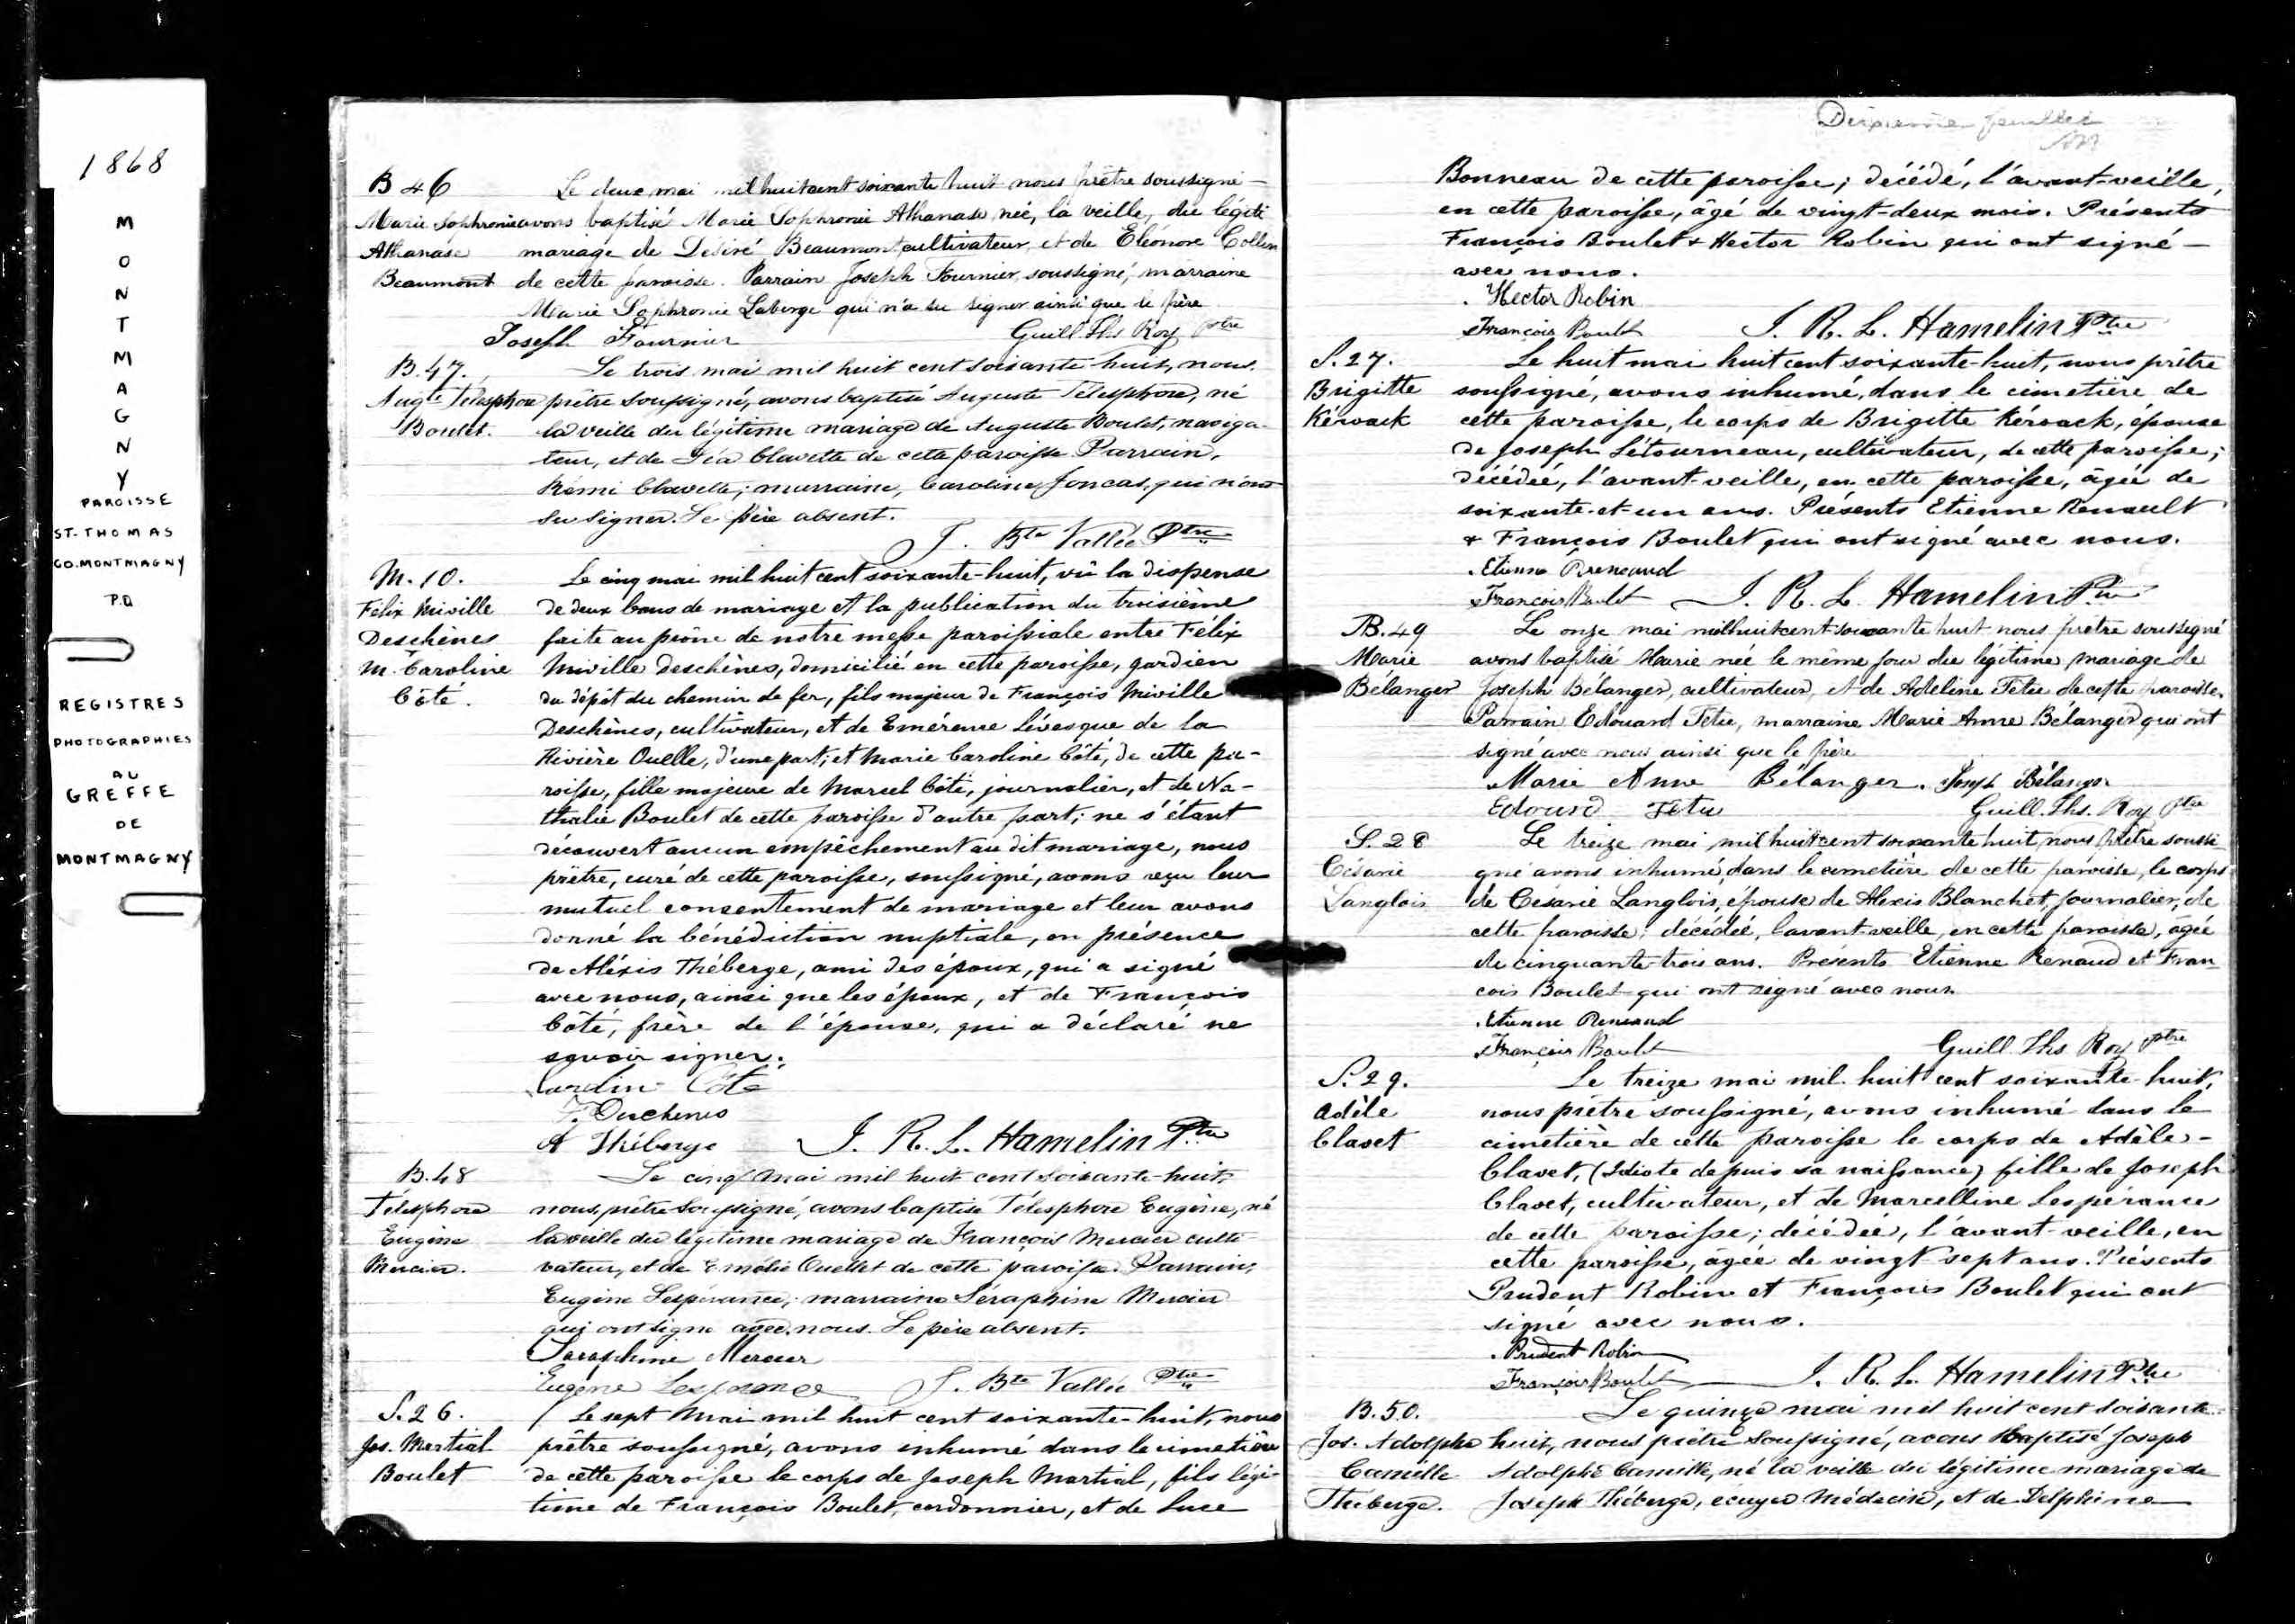 1868
MONTMAGNY
PAROISSE
ST-THOMAS
CO. MONTMAGNY
P.Q
REGISTRES
PHOTOGRAPHIES
AU
GREFFE
DE
MONTMAGNY
B 46
Marie Sophronie
Athanase
Beaumont
Le deux mai mil huit cent soixante huit nous prêtre soussigné
avons baptisé Marie Sophronie Athanase née, la veille, du légiti
mariage de Désiré Beaumont cultivateur et de Éléonore Collin
de cette paroisse. Parrain Joseph Fournier, soussigné, marraine
Marie Sophronie Laberge qui n'a su signer ainsi que le père
Joseph Fournier Guill Ths Roy Ptre
B. 47.
Augte Télesphore
Boulet.
Le trois mai mil huit cent soixante-huit, nous
prêtre soussigné, avons baptisé Auguste Télesphore, né
la veille du légitime mariage de Auguste Boulet, naviga-
teur, et de Léa Clavette de cette paroisse Parrain,
Rémi Clavette; marraine, Caroline Joncas, qui n'ont
su signer. Le père absent.
J. Bte Vallée Ptre
M. 10.
Félix Miville
Deschènes
M. Caroline
Côté.
Le cinq mai mil huit cent soixante-huit, vû la dispense
de deux bans de mariage et la publication du troisième
faite au prône de notre messe paroissiale entre Félix
Miville Deschènes, domicilié en cette paroisse, gardien
du dépôt du chemin de fer, fils majeur de François Miville
Deschènes, cultivateur, et de Emérence Lévesque de la
Rivière Ouelle, d'une part; et Marie Caroline Côté, de cette pa-
roisse, fille majeure de Marcel Côté, journalier, et de Na-
thalie Boulet de cette paroisse d'autre part; ne s'étant
découvert aucun empêchement au dit mariage, nous
prêtre, curé de cette paroisse, soussigné, avons reçu leur
mutuel consentement de mariage et leur avons
donné la bénédiction nuptiale, en présence
de Aléxis Théberge, ami des époux, qui a signé
avec nous, ainsi que les époux, et de François
Côté, frère de l'épouse, qui a déclaré ne
savoir signer.
Côté
F. Deschenes
A Théberge J. R. L. Hamelin Ptre
B. 48
Télesphore
Eugène
Mercier.
Le cinq mai mil huit cent soixante-huit,
nous, prêtre soussigné, avons baptisé Télesphore Eugène, né
la veille du légitime mariage de François Mercier culti
vateur, et de Emélie Ouellet de cette paroisse. Parrain,
Eugène Lespérance; marraine Séraphine Mercier
qui ont signé avec nous. Le père absent.
Saraphine Mercier
Eugène Lesperance J. Bte Vallée Ptre
S. 26.
Jos. Martial
Boulet
Le sept mai mil huit cent soixante-huit, nous
prêtre soussigné, avons inhumé dans le cimetière
de cette paroisse le corps de Joseph Martial, fils légi-
time de François Boulet, cordonnier, et de Luce
Dixième feuillet
Bonneau de cette paroisse; décédé, l'avant-veille,
en cette paroisse, âgé de vingt-deux mois. Présents
François Boulet & Hector Robin qui ont signé
avec nous.
Hector Robin
François Boulet J. R. L. Hamelin Ptre
S. 27.
Brigitte
Kérouack
Le huit mai huit cent soixante-huit, nous prêtre
soussigné, avons inhumé, dans le cimetière de
cette paroisse, le corps de Brigitte Kérouack, épouse
de Joseph Létourneau, cultivateur, de cette paroisse;
décédée, l'avant-veille, en cette paroisse, âgée de
soixante-et-un ans. Présents Etienne Renault
& François Boulet qui ont signé avec nous.
Etienne Renaud
François Boulet J. R. L. Hamelin Ptre
B. 49
Marie
Bélanger
Le onze mai mil huit cent soixante huit nous prêtre soussigné
avons baptisé Marie née le même jour du légitime mariage de
Joseph Bélanger, cultivateur, et de Adeline Têtu de cette paroisse.
Parrain Edouard Têtu, marraine Marie Anne Bélanger qui ont
signé avec nous ainsi que le père
Marie Anne Bélanger. Joseph Bélanger
Edouard Têtu Guill. Ths. Roy Ptre
S. 28
Césarie
Langlois
Le treize mai mil huit cent soixante huit, nous prêtre soussi
gné avons inhumé, dans le cimetière de cette paroisse, le corps
de Césarie Langlois, épouse de Alexis Blanchet, journalier, de
cette paroisse, décédée, l'avant-veille, en cette paroisse, âgée
de cinquante-trois ans. Présents Etienne Renaud et Fran
cois Boulet qui ont signé avec nous.
Etienne Renaud
François Boulet Guill Ths Roy Ptre
S. 29.
Adèle
Clavet
Le treize mai mil huit cent soixante-huit,
nous prêtre soussigné, avons inhumé dans le
cimetière de cette paroisse le corps de Adèle
Clavet, (Idiote depuis sa naissance) fille de Joseph
Clavet, cultivateur, et de Marcelline Lespérance
de cette paroisse; décédée, l'avant-veille, en
cette paroisse, âgée de vingt-sept ans. Présents
Prudent Robin et François Boulet qui ont
signé avec nous.
Prudent Robin
François Boulet J. R. L. Hamelin Ptre
B. 50.
Jos. Adolphe
Camille
Théberge.
Le quinze mai mil huit cent soixante-
huit, nous prêtre soussigné, avons baptisé Joseph
Adolphe Camille, né la veille du légitime mariage de
Joseph Théberge, écuyer Médecin, et de Delphine